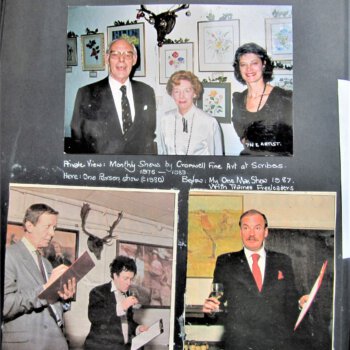 THE ARTIST.
Private View: Monthly Shows by Cromwell Fine Art at Scribes.
1976 - 1983.
Here: One Person Show (c1980) Below: My One Man Show 1987.
With Trainee Freeloaders